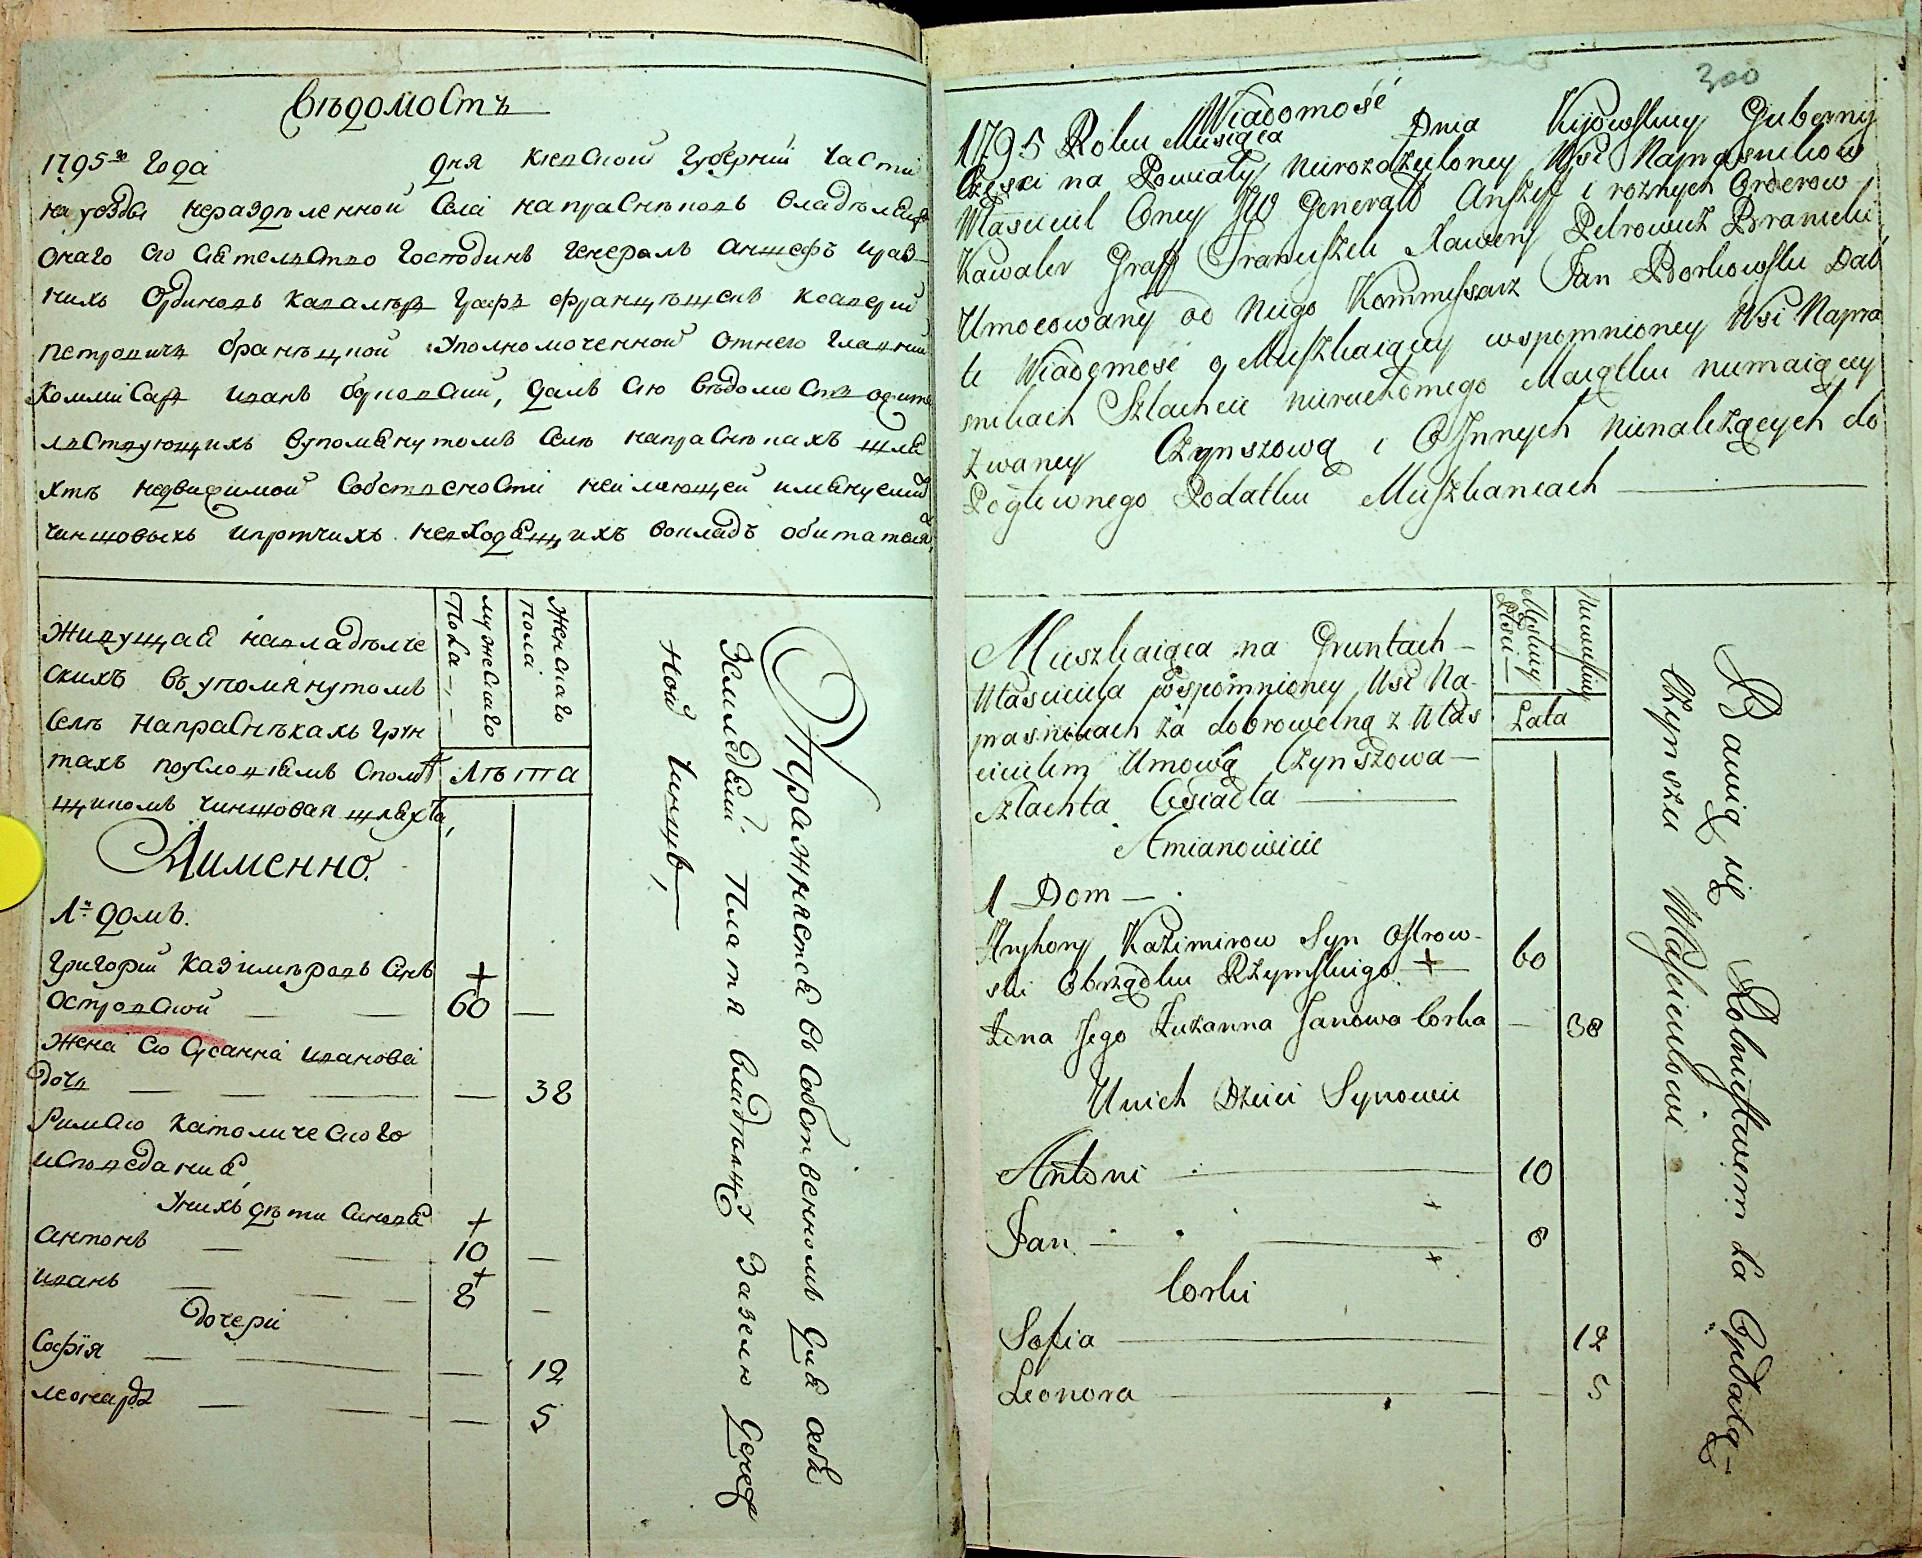 Вѣдомостъ
1795го года дня Киевской губерний части
на уезды неразделенной села напраснѣновъ владѣлецъ
онаго его сиятелство господинъ генералъ аншефъ и раз
нихъ ординовъ кавалѣръ графъ францѣщекъ ксаверий
петровичъ бранѣцкой уполномоченной отнего главний
коммисаръ иванъ борковский, далъ сию вѣдомость о жите
лствующихъ вупомянутомъ селѣ напраснѣкахъ шля
хтѣ недвижимой собственности неимеющей имянуемой
чиншовыхъ ипротчихъ невходящихъ вокладъ обитателяхъ
Живущая навладѣлче
скихъ въ упомянутомъ
селѣ напраснѣкахъ грун
тахъ поусловиемъ спомѣ
щикомъ чиншовая шляхта,
Аименно.
1й домъ.
Григорий казимѣровъ синъ
островской 60
жена его сусанна иванова
дочъ 38
Римско католического
исповедания
Унихъ дѣти синовя
антонъ 10
иванъ 8
дочери
софия 12
леонарда 5
мужеского
пола
женского
пола
лѣта
Упражняется въ собственномъ для себя
земледелии. Платя владѣлцу заземлю денеж
ной чиншъ,
300
Wiadomość
1795 Roku Miesiąca Dnia Kijowskiey Guberny
Części na Powiaty nierozdzieloney Wsi Naprasnikow
Właściciel Oney JW Generał Anszef i roznych Orderow
Kawaler Graff Franciszek Xawery Petrowicz Branicki
Umocowany od Niego Kommissarz Jan Borkowski Dał
te Wiadomość o Mieszkaiącey wspomnioney Wsi Napra
snikach Szlachcie nieruchomego Maiątku niemaiącey
zwaney Czynszową i O Innych nienależących do
Pogłownego Podatku Mieszkancach
Mieszkaiąca na Gruntach
Właściciela wspomnioney Wsi Na
prasnikach za dobrowolną z Właś
cicielem Umową Czynszowa
Szlachta Osiadła
Amianowicie
1 Dom
Hryhory Kazimirow Syn Ostrow
ski Obrządku Rzymskiego 60
Żona Jego Zuzanna Janowa Corka 38
Unich Dzieci Synowie
Antoni 10
Jan 8
Corki
Sofia 12
Leonora 5
Męskiey
Płści
Niewieściey
Lata
Bawią się Rolnictwem za Opłatą
Czynszu Właścicielowi